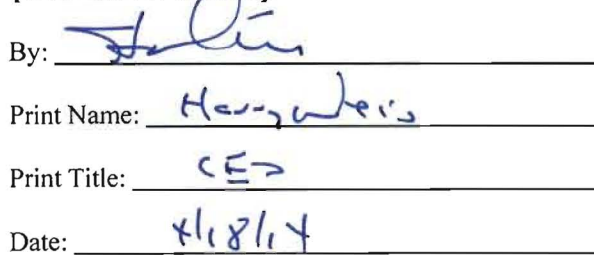 By:
Print Name: Harry Weis
Print Title: CEO
Date: 4/18/14